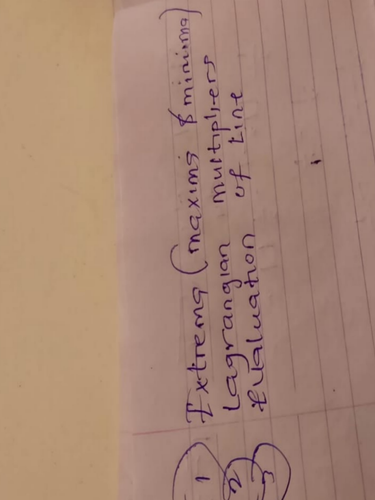 1) Extrema (maxima & minima)
2) Lagrangian multipliers
3) Evaluation of Line